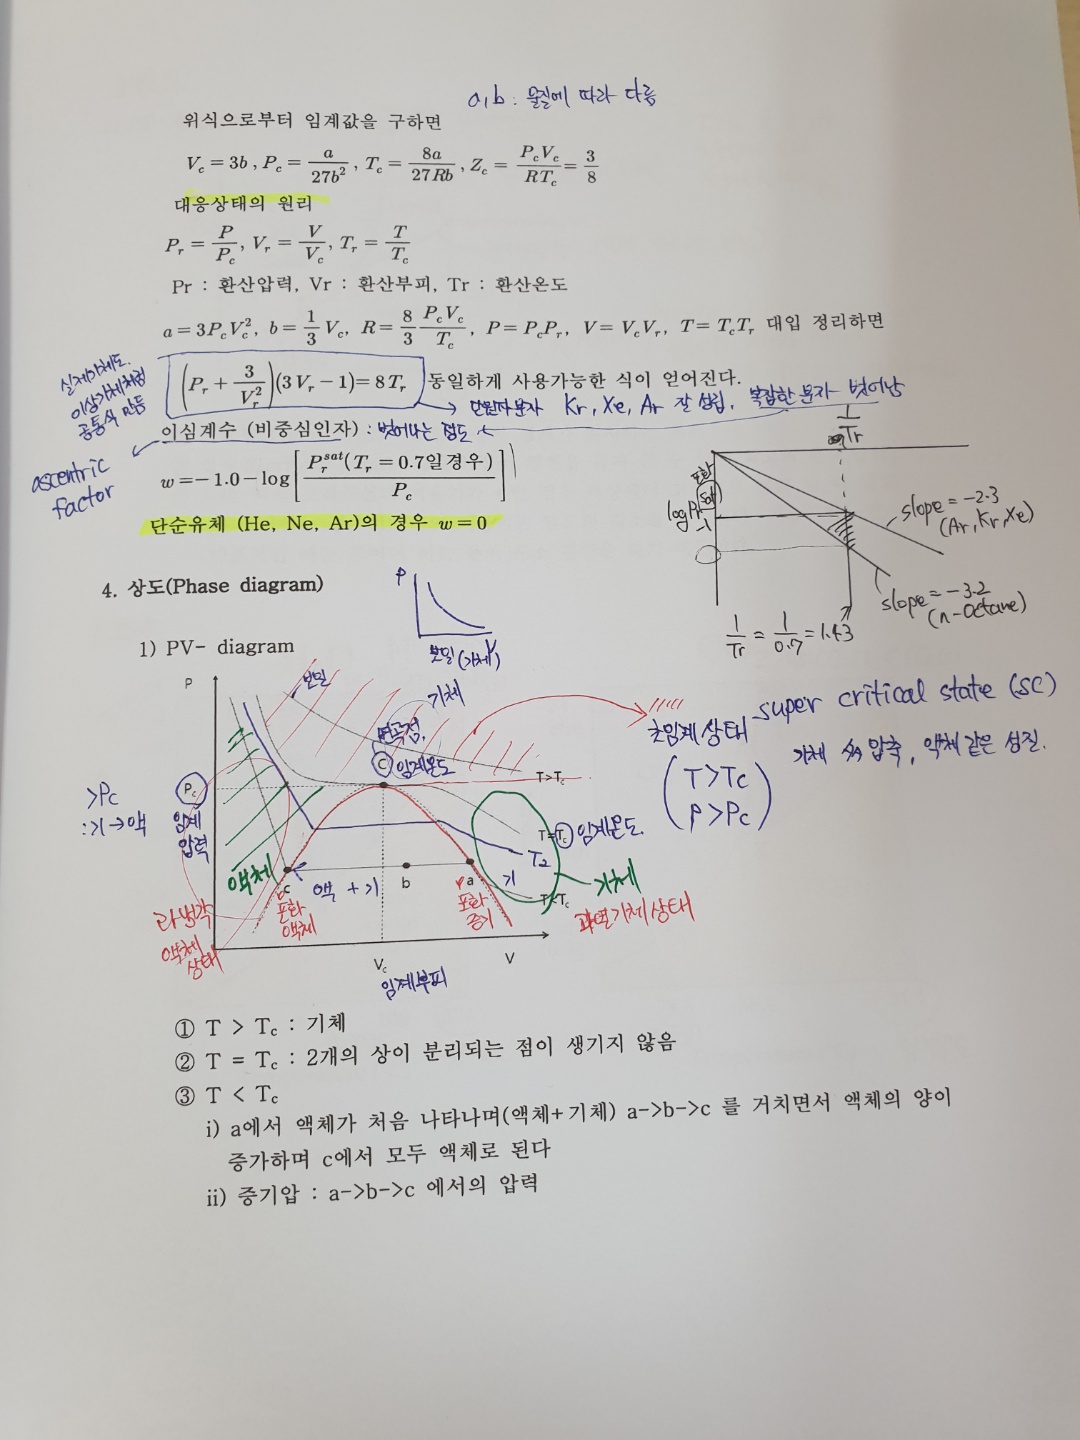 a,b : 물질에 따라 다름
위식으로부터 임계값을 구하면
V_c = 3b , P_c = a/27b² , T_c = 8a/27Rb , Z_c = P_cV_c/RT_c = 3/8
대응상태의 원리
P_r = P/P_c, V_r = V/V_c, T_r = T/T_c
Pr : 환산압력, Vr : 환산부피, Tr : 환산온도
a = 3P_cV_c², b = 1/3 V_c, R = 8/3 P_cV_c/T_c, P = P_cP_r, V = V_cV_r, T = T_cT_r 대입 정리하면
실제기체도.
이상기체처럼
공통식 만듦
(P_r + 3/V_r²)(3V_r − 1) = 8T_r 동일하게 사용가능한 식이 얻어진다.
→ 단원자분자 Kr, Xe, Ar 잘 성립, 복잡한 분자 벗어남
이심계수 (비중심인자) : 벗어나는 정도
ascentric
factor
w = −1.0 − log[P_r^sat(T_r = 0.7일 경우)/P_c]
단순유체 (He, Ne, Ar)의 경우 w = 0
1/Tr
포화
log Pr sat
-1
slope = -2.3
(Ar, Kr, Xe)
slope = -3.2
(n-Octane)
1/Tr = 1/0.7 = 1.43
4. 상도(Phase diagram)
P
V
보일(기체)
1) PV- diagram
P
보일
기체
변곡점,
C 임계온도
T>T_c
초임계상태 super critical state (SC)
기체 압축, 액체 같은 성질.
(T>Tc
P>Pc)
>Pc
:기→액
P_c
임계
압력
T=T_c 임계온도.
T2
액체
c
액 + 기
b
a
기
T<T_c
기체
과열기체상태
포화
액체
포화
증기
액체
상태
V_c
V
임계부피
① T > Tc : 기체
② T = Tc : 2개의 상이 분리되는 점이 생기지 않음
③ T < Tc
i) a에서 액체가 처음 나타나며(액체+기체) a->b->c 를 거치면서 액체의 양이
증가하며 c에서 모두 액체로 된다
ii) 증기압 : a->b->c 에서의 압력